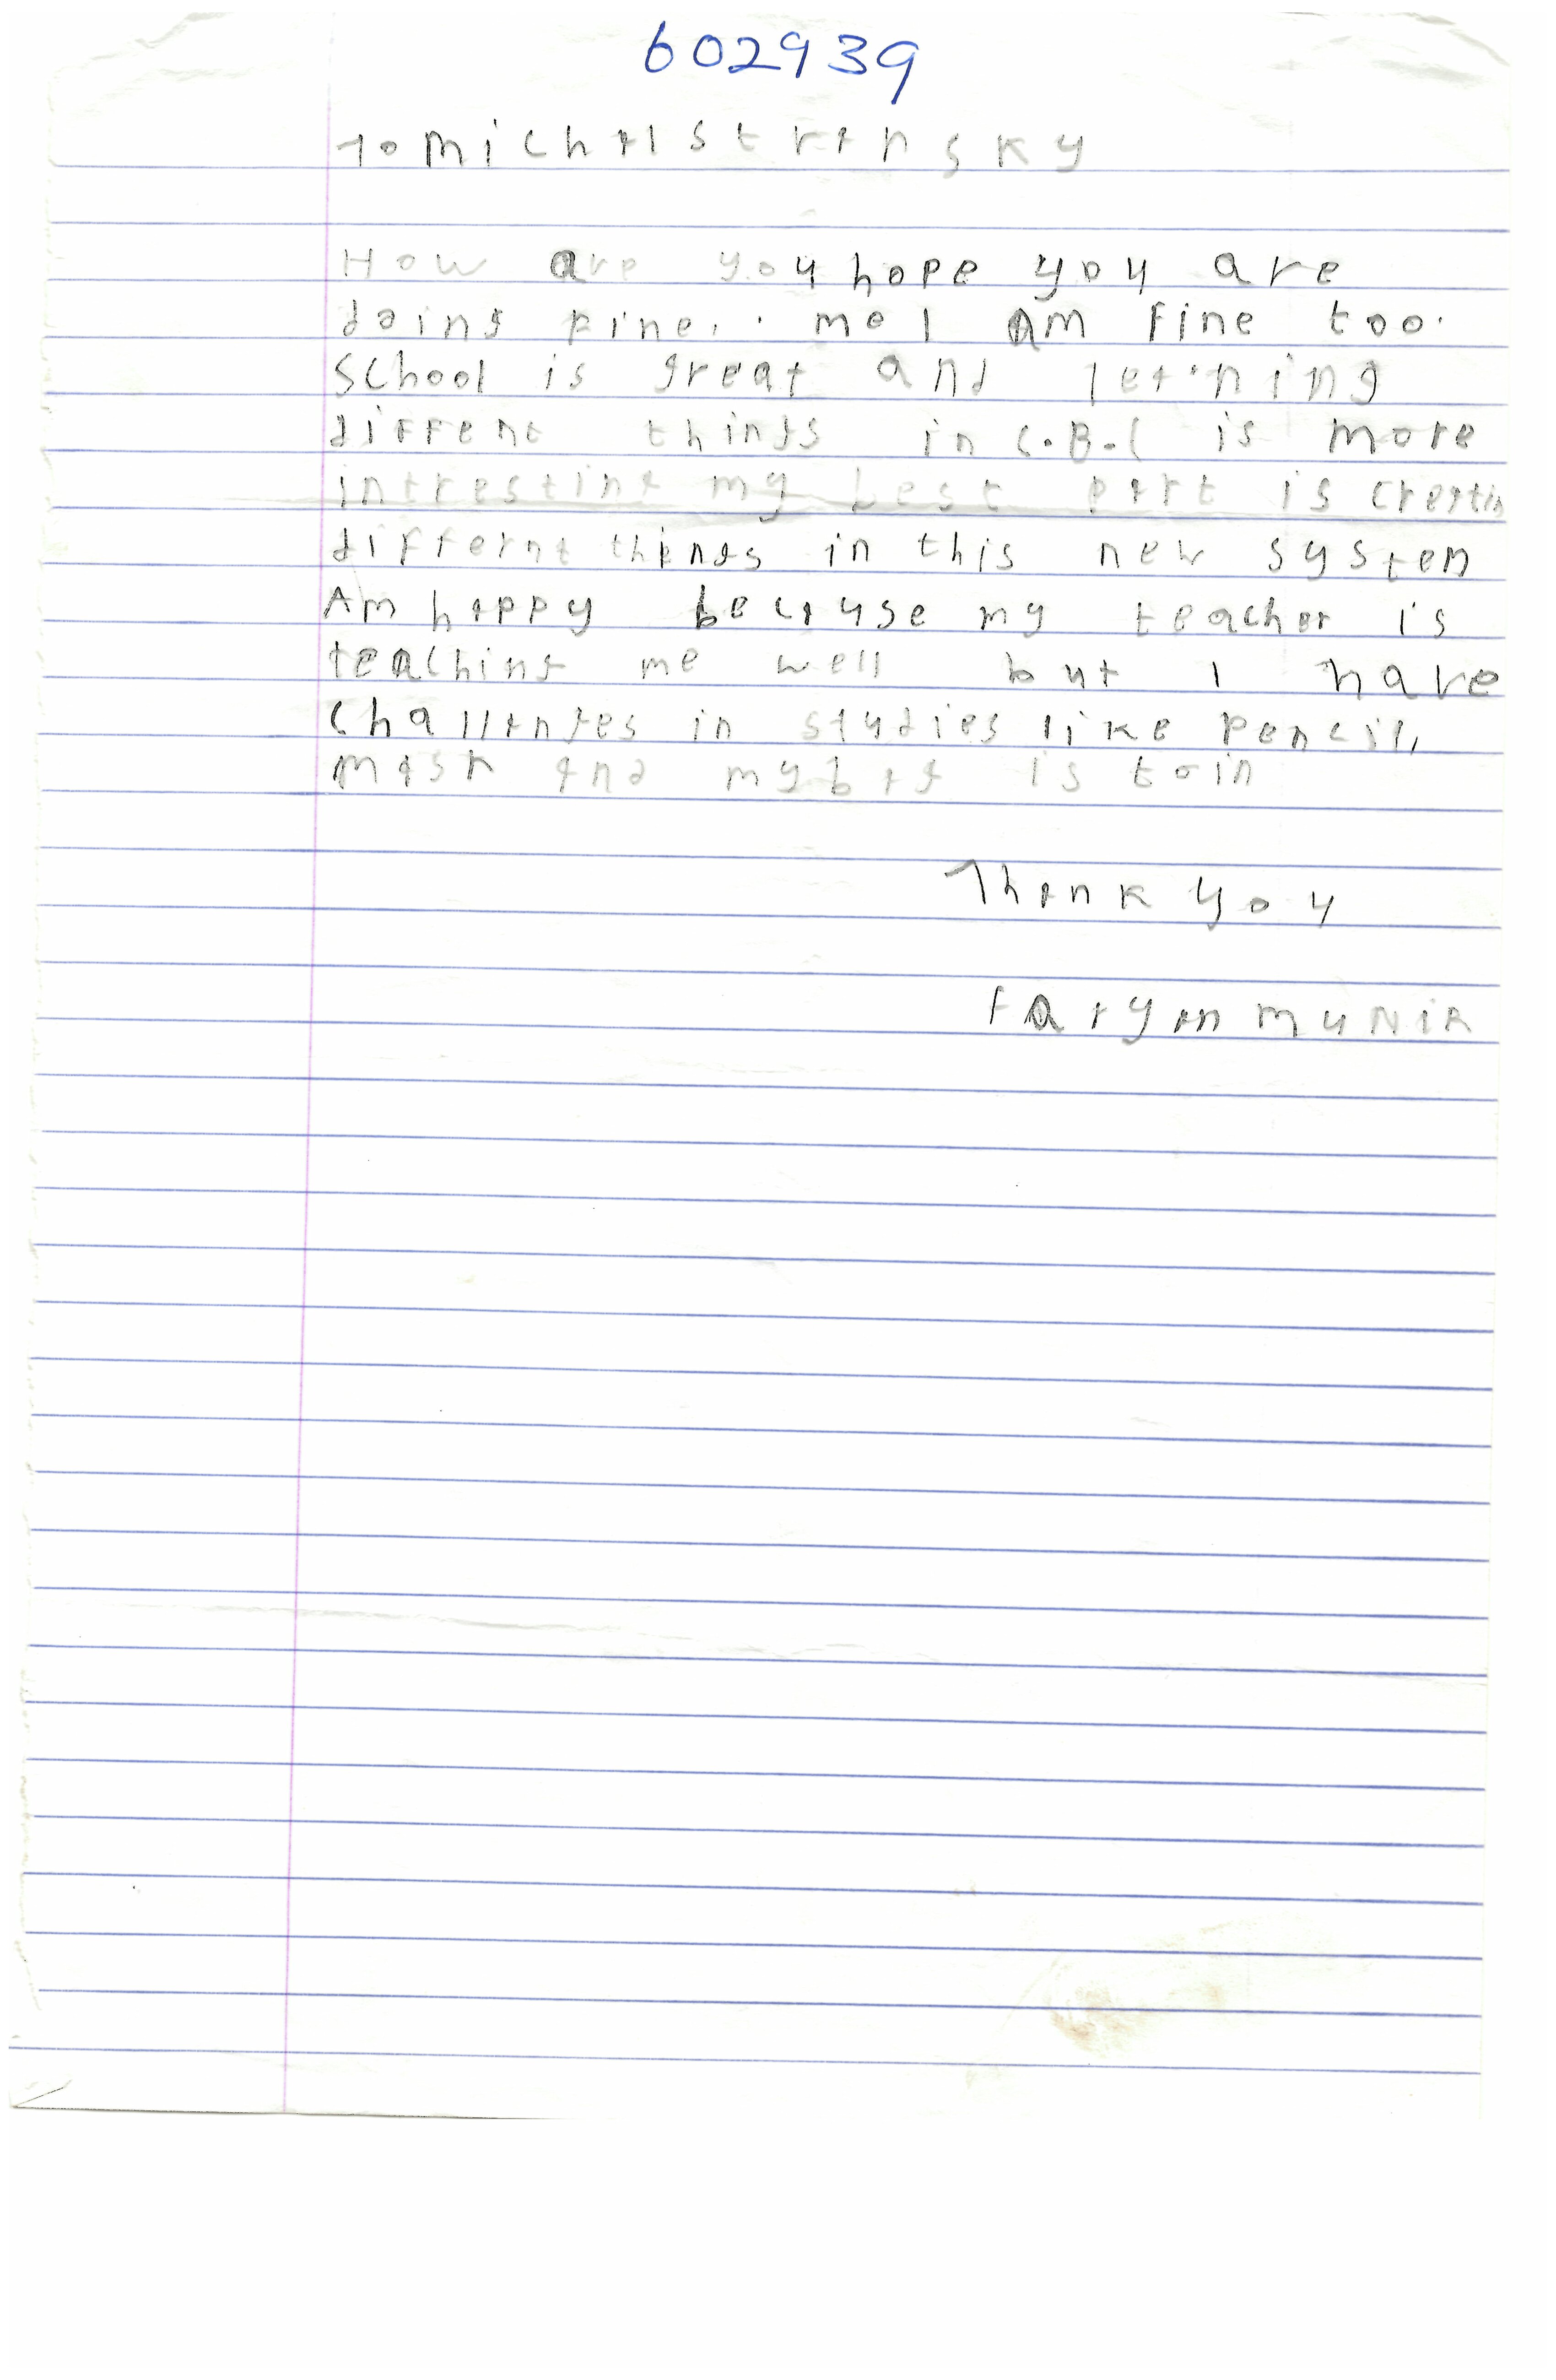 602939
To Michal Stransky
How are you hope you are
doing fine. . me I am fine too.
School is great and learning
diffent things in C.B.C is more
intresting my best part is creatin
differnt things in this new system
Am happy because my teacher is
teaching me well but I have
challanges in studies like pencil,
mask and my bag is toin
Thank you
Faryan MUNIR